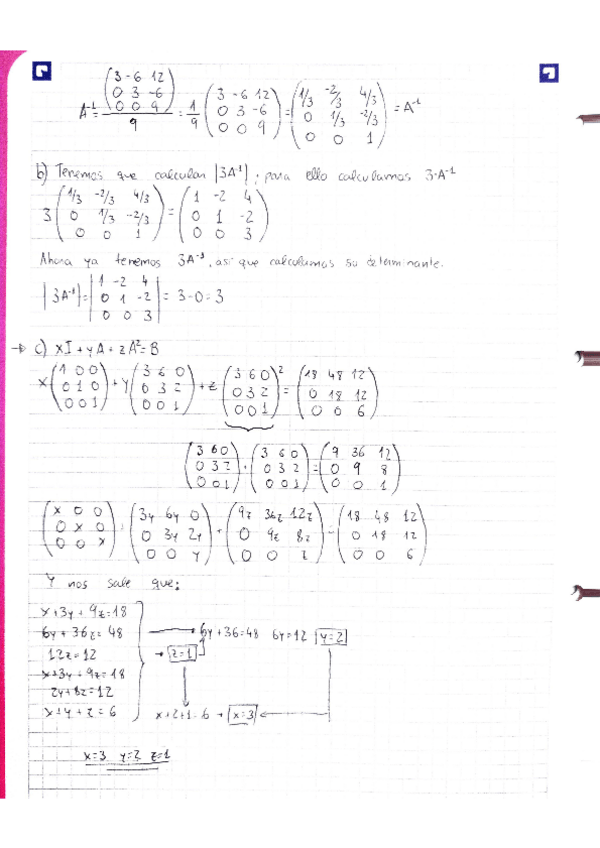 A⁻¹ = (3 -6 12 / 0 3 -6 / 0 0 9) / 9 = 1/9 (3 -6 12 / 0 3 -6 / 0 0 9) = (1/3 -2/3 4/3 / 0 1/3 -2/3 / 0 0 1) = A⁻¹
b) Tenemos que calcular |3A⁻¹|, para ello calculamos 3·A⁻¹
3 (1/3 -2/3 4/3 / 0 1/3 -2/3 / 0 0 1) = (1 -2 4 / 0 1 -2 / 0 0 3)
Ahora ya tenemos 3A⁻¹, así que calculamos su determinante.
|3A⁻¹| = |1 -2 4 / 0 1 -2 / 0 0 3| = 3-0=3
→ c) xI + yA + zA² = B
x (1 0 0 / 0 1 0 / 0 0 1) + y (3 6 0 / 0 3 2 / 0 0 1) + z (3 6 0 / 0 3 2 / 0 0 1)² = (18 48 12 / 0 18 12 / 0 0 6)
(3 6 0 / 0 3 2 / 0 0 1) · (3 6 0 / 0 3 2 / 0 0 1) = (9 36 12 / 0 9 8 / 0 0 1)
(x 0 0 / 0 x 0 / 0 0 x) + (3y 6y 0 / 0 3y 2y / 0 0 y) + (9z 36z 12z / 0 9z 8z / 0 0 z) = (18 48 12 / 0 18 12 / 0 0 6)
Y nos sale que:
x+3y+9z=18
6y+36z=48 → 6y+36=48 6y=12 y=2
12z=12 → z=1
x+3y+9z=18
2y+8z=12
x+y+z=6 x+2+1=6 → x=3
x=3 y=2 z=1